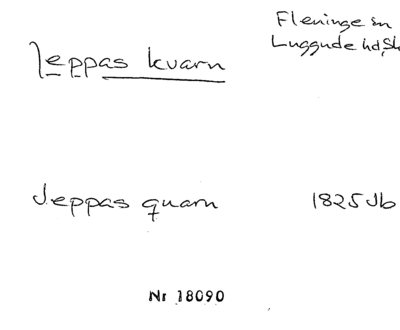 Jeppas kvarn
Fleninge sn
Luggude hd, Sk
Jeppas quarn
1825 Jb
Nr 18090